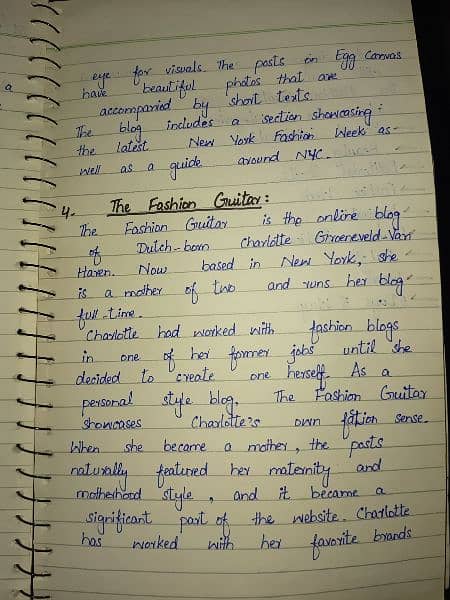 eye for visuals. The posts on Egg Canvas
have beautiful photos that are
accompanied by short texts.
The blog includes a section showcasing
the latest New York Fashion Week as
well as a guide around NYC.
4. The Fashion Guitar:
The Fashion Guitar is the online blog
of Dutch-born Charlotte Groeneveld-Van
Haren. Now based in New York, she
is a mother of two and runs her blog
full-time.
Charlotte had worked with fashion blogs
in one of her former jobs until she
decided to create one herself. As a
personal style blog, The Fashion Guitar
showcases Charlotte's own sense.
When she became a mother, the posts
naturally featured her maternity and
motherhood style, and it became a
significant part of the website. Charlotte
has worked with her favorite brands